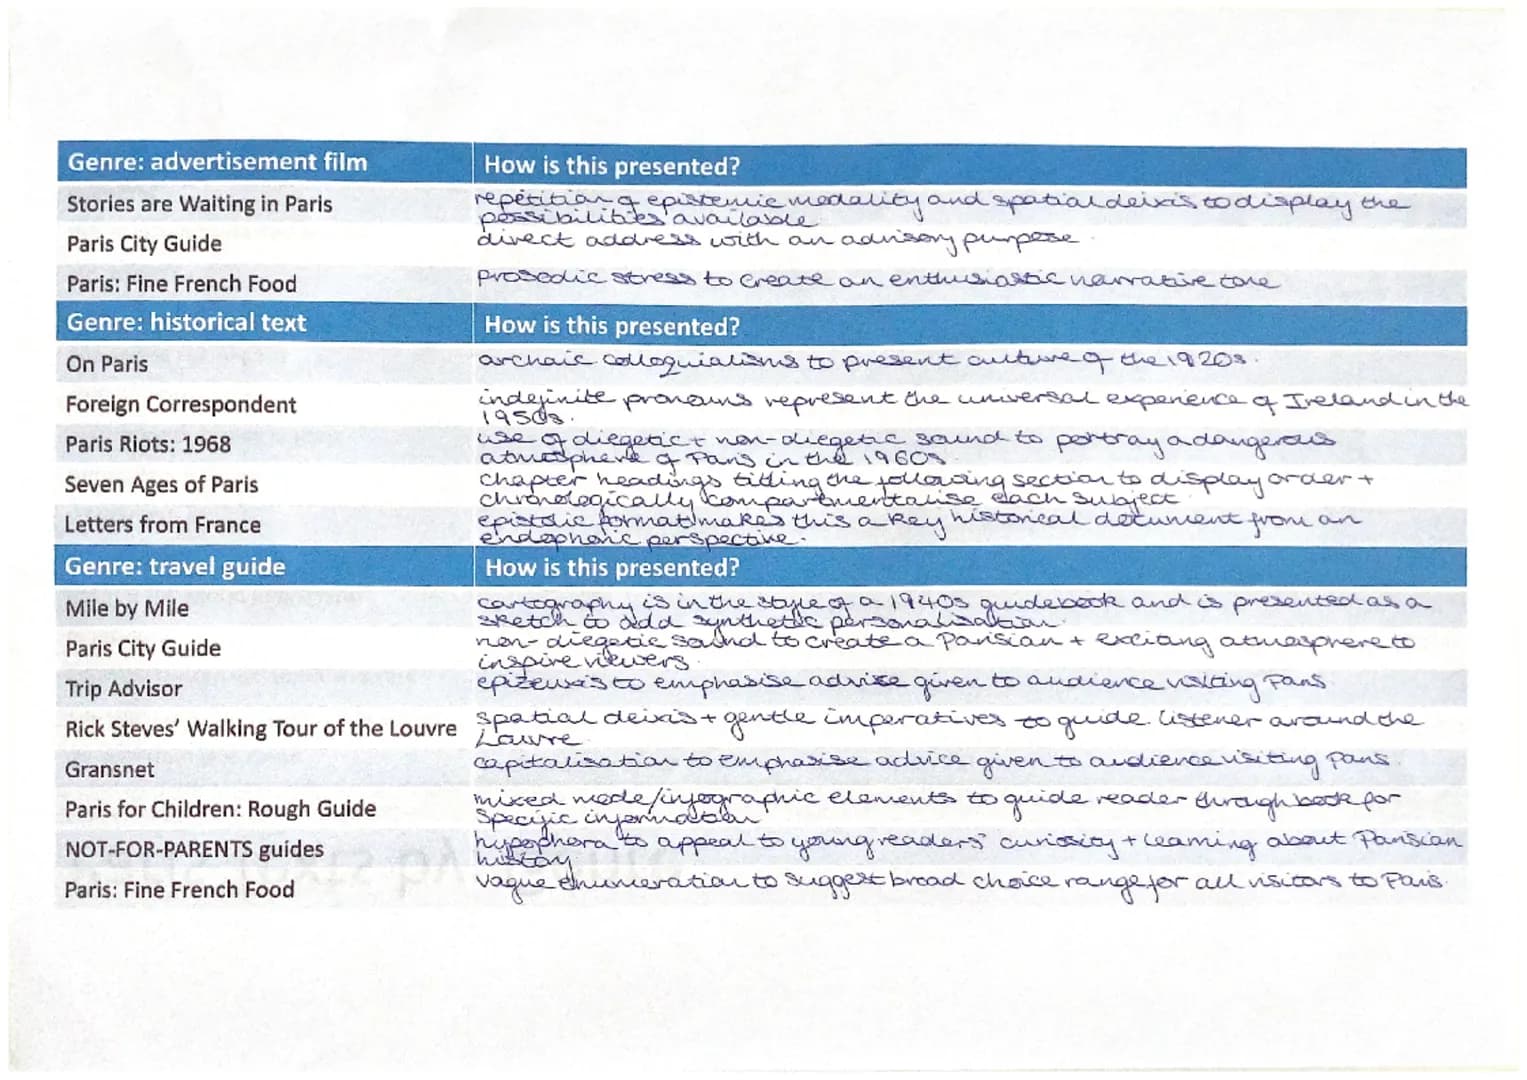 Genre: advertisement film How is this presented?
Stories are Waiting in Paris repetition of epistemic modality and spatial deixis to display the
possibilities available
Paris City Guide direct address with an advisory purpose.
Paris: Fine French Food prosodic stress to create an enthusiastic narrative tone
Genre: historical text How is this presented?
On Paris archaic colloquialisms to present culture of the 1920s.
Foreign Correspondent indefinite pronouns represent the universal experience of Ireland in the
1950s.
Paris Riots: 1968 use of diegetic + non-diegetic sound to portray a dangerous
atmosphere of Paris in the 1960s
Seven Ages of Paris chapter headings titling the following section to display order +
chronologically compartmentalise each subject
Letters from France epistolic format makes this a key historical document from an
endophoric perspective.
Genre: travel guide How is this presented?
Mile by Mile cartography is in the style of a 1940s guidebook and is presented as a
sketch to add synthetic personalisation
Paris City Guide non-diegetic sound to create a Parisian + exciting atmosphere to
inspire viewers.
Trip Advisor epizeuxis to emphasise advise given to audience visiting Paris
Rick Steves' Walking Tour of the Louvre spatial deixis + gentle imperatives to guide listener around the
Louvre
Gransnet capitalisation to emphasise advice given to audience visiting Paris.
Paris for Children: Rough Guide mixed mode/infographic elements to guide reader through book for
specific information
NOT-FOR-PARENTS guides hypophora to appeal to young readers' curiosity + learning about Parisian
history
Paris: Fine French Food vague enumeration to suggest broad choice range for all visitors to Paris.